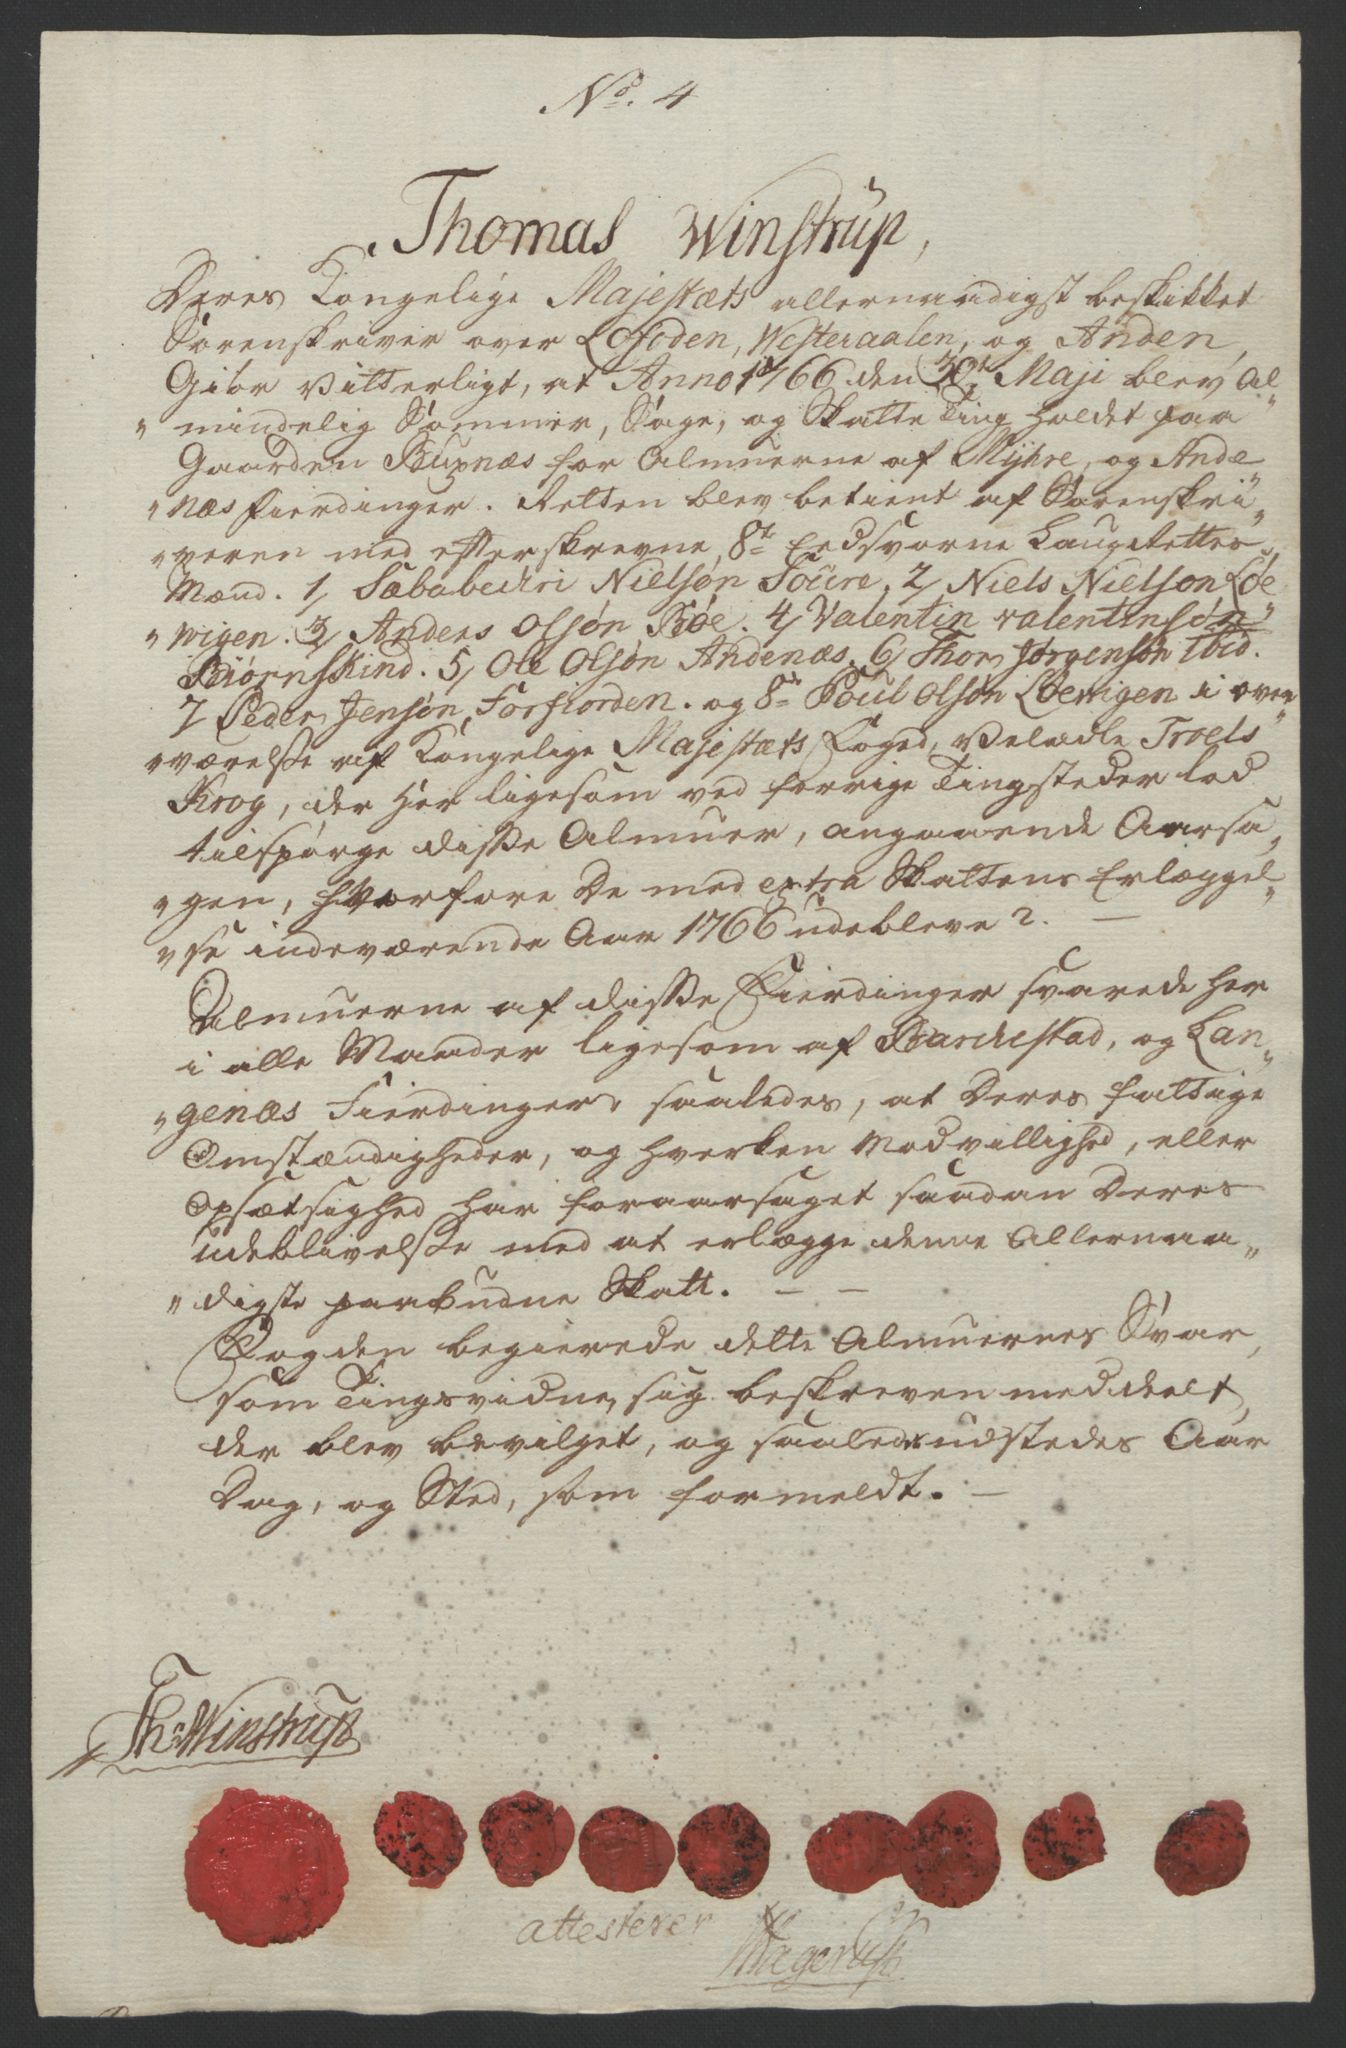 No. 4
Thomas Winstrup,
Deres Kongelige Majestæts allernaadigst beskikket
Sorenskriver over Lofoden, Westeraalen, og Anden,
Giør Vitterligt, at Anno 1766 den 30te Maji blev Al„
„mindelig Sommer, Sage, og Skatte Ting holdet paa
Gaarden Buxnæs for Almuerne af Myhre, og Ande„
„næs fierdinger. Retten blev betient af Sorenskri„
„veren med efterskrevne 8te Eedsvorne Laugrettes
Mænd. 1, Nielsøn Toure, 2, Niels Nielson Løe
„wigen. 3, Anders Olsøn Bøe. 4, Valentin Valentinsøn
Biørnskind. 5, Ole Olsøn Andenæs. 6, Thor Jørgensøn ibid.
7 Peder Jensøn, Forfiorden. og 8de Poul Olsøn Løewigen i over
„værelse af Kongelige Majestæts Foged, Velædle Troels
Krog, der her ligesom ved forrige Tingsteder lod
tilspørge disse Almuer, angaaende Aarsa„
„gen, hvorfore De med extra Skattens Erlæggel„
„se indeværende Aar 1766 udebleve?. —
Almuerne af disse Fierdinger svarede her
i alle Maader ligesom af Barchestad, og Lan„
„genæs Fierdinger, saaledes, at Deres fattige
Omstændigheder, og hverken Modvillighed, eller
Opsætsighed har foraarsaget saadan Deres
Udeblivelse med at erlægge denne Allernaa„
„digste paabudne Skatt. — —
Fogden begierede dette Almuernes Svar,
som Tingsvidne, sig beskreven meddeelt,
der blev bevilget, og saaledes udstedes Aar
Dag, og Sted, som formeldt. —
Ths Winstrup
attesterer
Hagerup